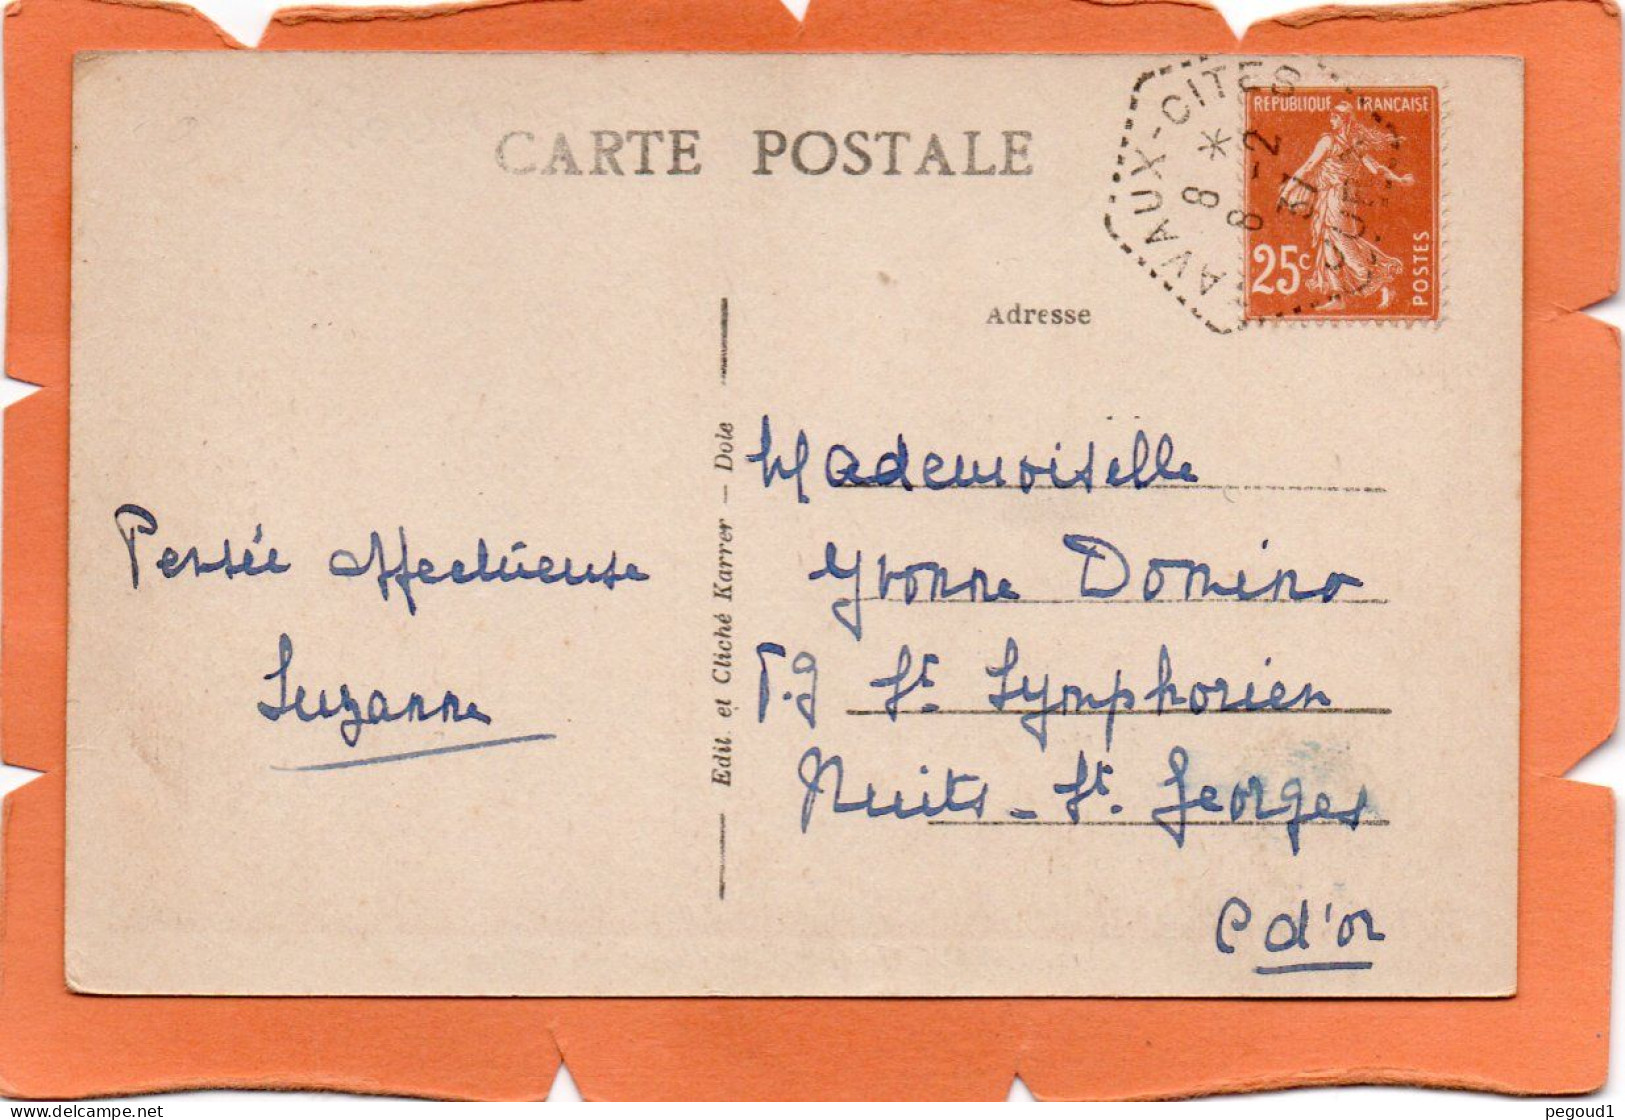 CARTE POSTALE
REPUBLIQUE FRANÇAISE
25c
POSTES
TAVAUX-CITES
8 *
8 -2
31
JURA
Adresse
Edit. et Cliché Karrer - Dole
Pensée affectueuse
Suzanne
Mademoiselle
Yvonne Domino
St Symphorien
Nuits - St. Georges
C d'or
delcampe.net
pegoud1